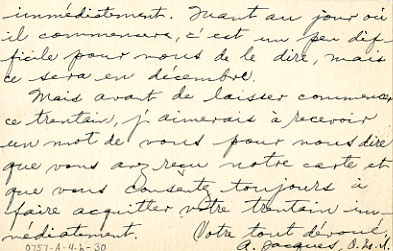 immédiatement. Quant au jour où
il commencera, c'est un peu dif-
ficile pour nous de le dire, mais
ce sera en décembre.
Mais avant de laisser commencer
ce trentain, j'aimerais à recevoir
un mot de vous pour nous dire
que vous avez reçu notre carte et
que vous consentez toujours à
faire acquitter votre trentain im-
médiatement. Votre tout dévoué,
A. Jacques, O.M.I.
0757-A-4-2-30